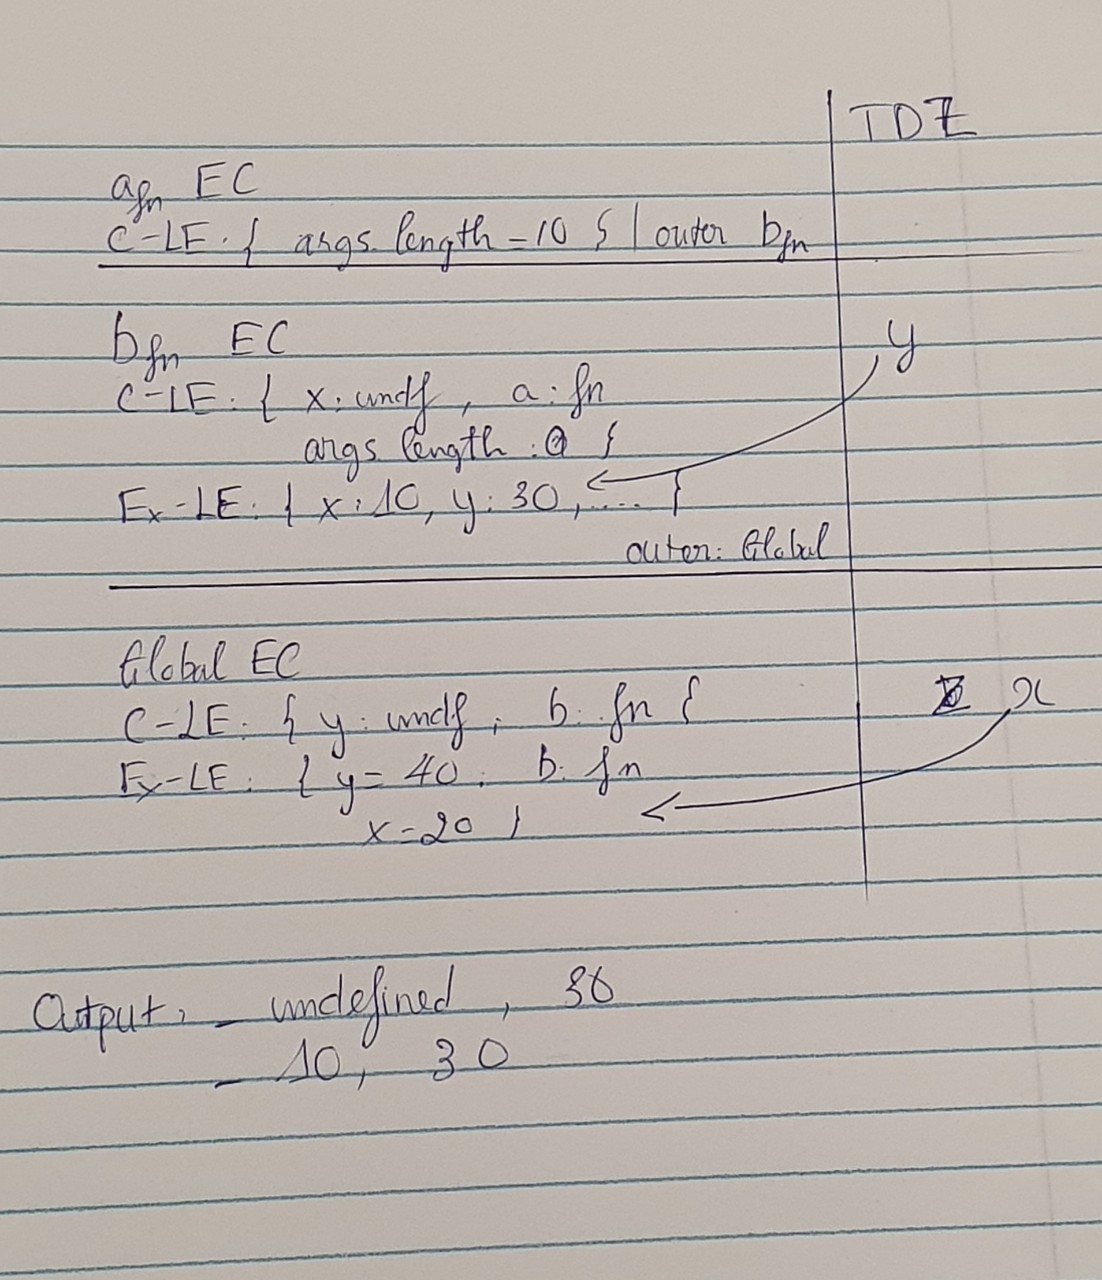 TDZ
afn EC
C-LE. { args. length = 10 } | outer bfn
bfn EC
y
C-LE: { x: undf, a: fn
args length : 0 }
Ex-LE: { x: 10, y: 30, .... }
outer: Global
Global EC
x
C-LE: { y: undf, b: fn }
Ex-LE: { y = 40, b: fn
x = 20 }
Output: - undefined, 30
- 10, 30